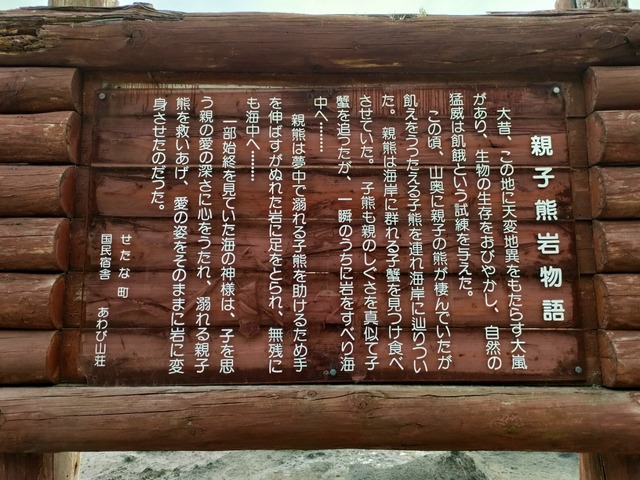 親子熊岩物語
大昔、この地に天変地異をもたらす大嵐
があり、生物の生存をおびやかし、自然の
猛威は飢餓という試練を与えた。
この頃、山奥に親子の熊が棲んでいたが
飢えをうったえる子熊を連れ海岸に辿りつい
た。親熊は海岸に群れる子蟹を見つけ食べ
させていた。子熊も親のしぐさを真似て子
蟹を追つたが、一瞬のうちに岩をすべり海
中へ……
親熊は夢中で溺れる子熊を助けるため手
を伸ばすがぬれた岩に足をとられ、無残に
も海中へ……
一部始終を見ていた海の神様は、子を思
う親の愛の深さに心をうたれ、溺れる親子
熊を救いあげ、愛の姿をそのままに岩に変
身させたのだった。
せたな町
国民宿舎 あわび山荘